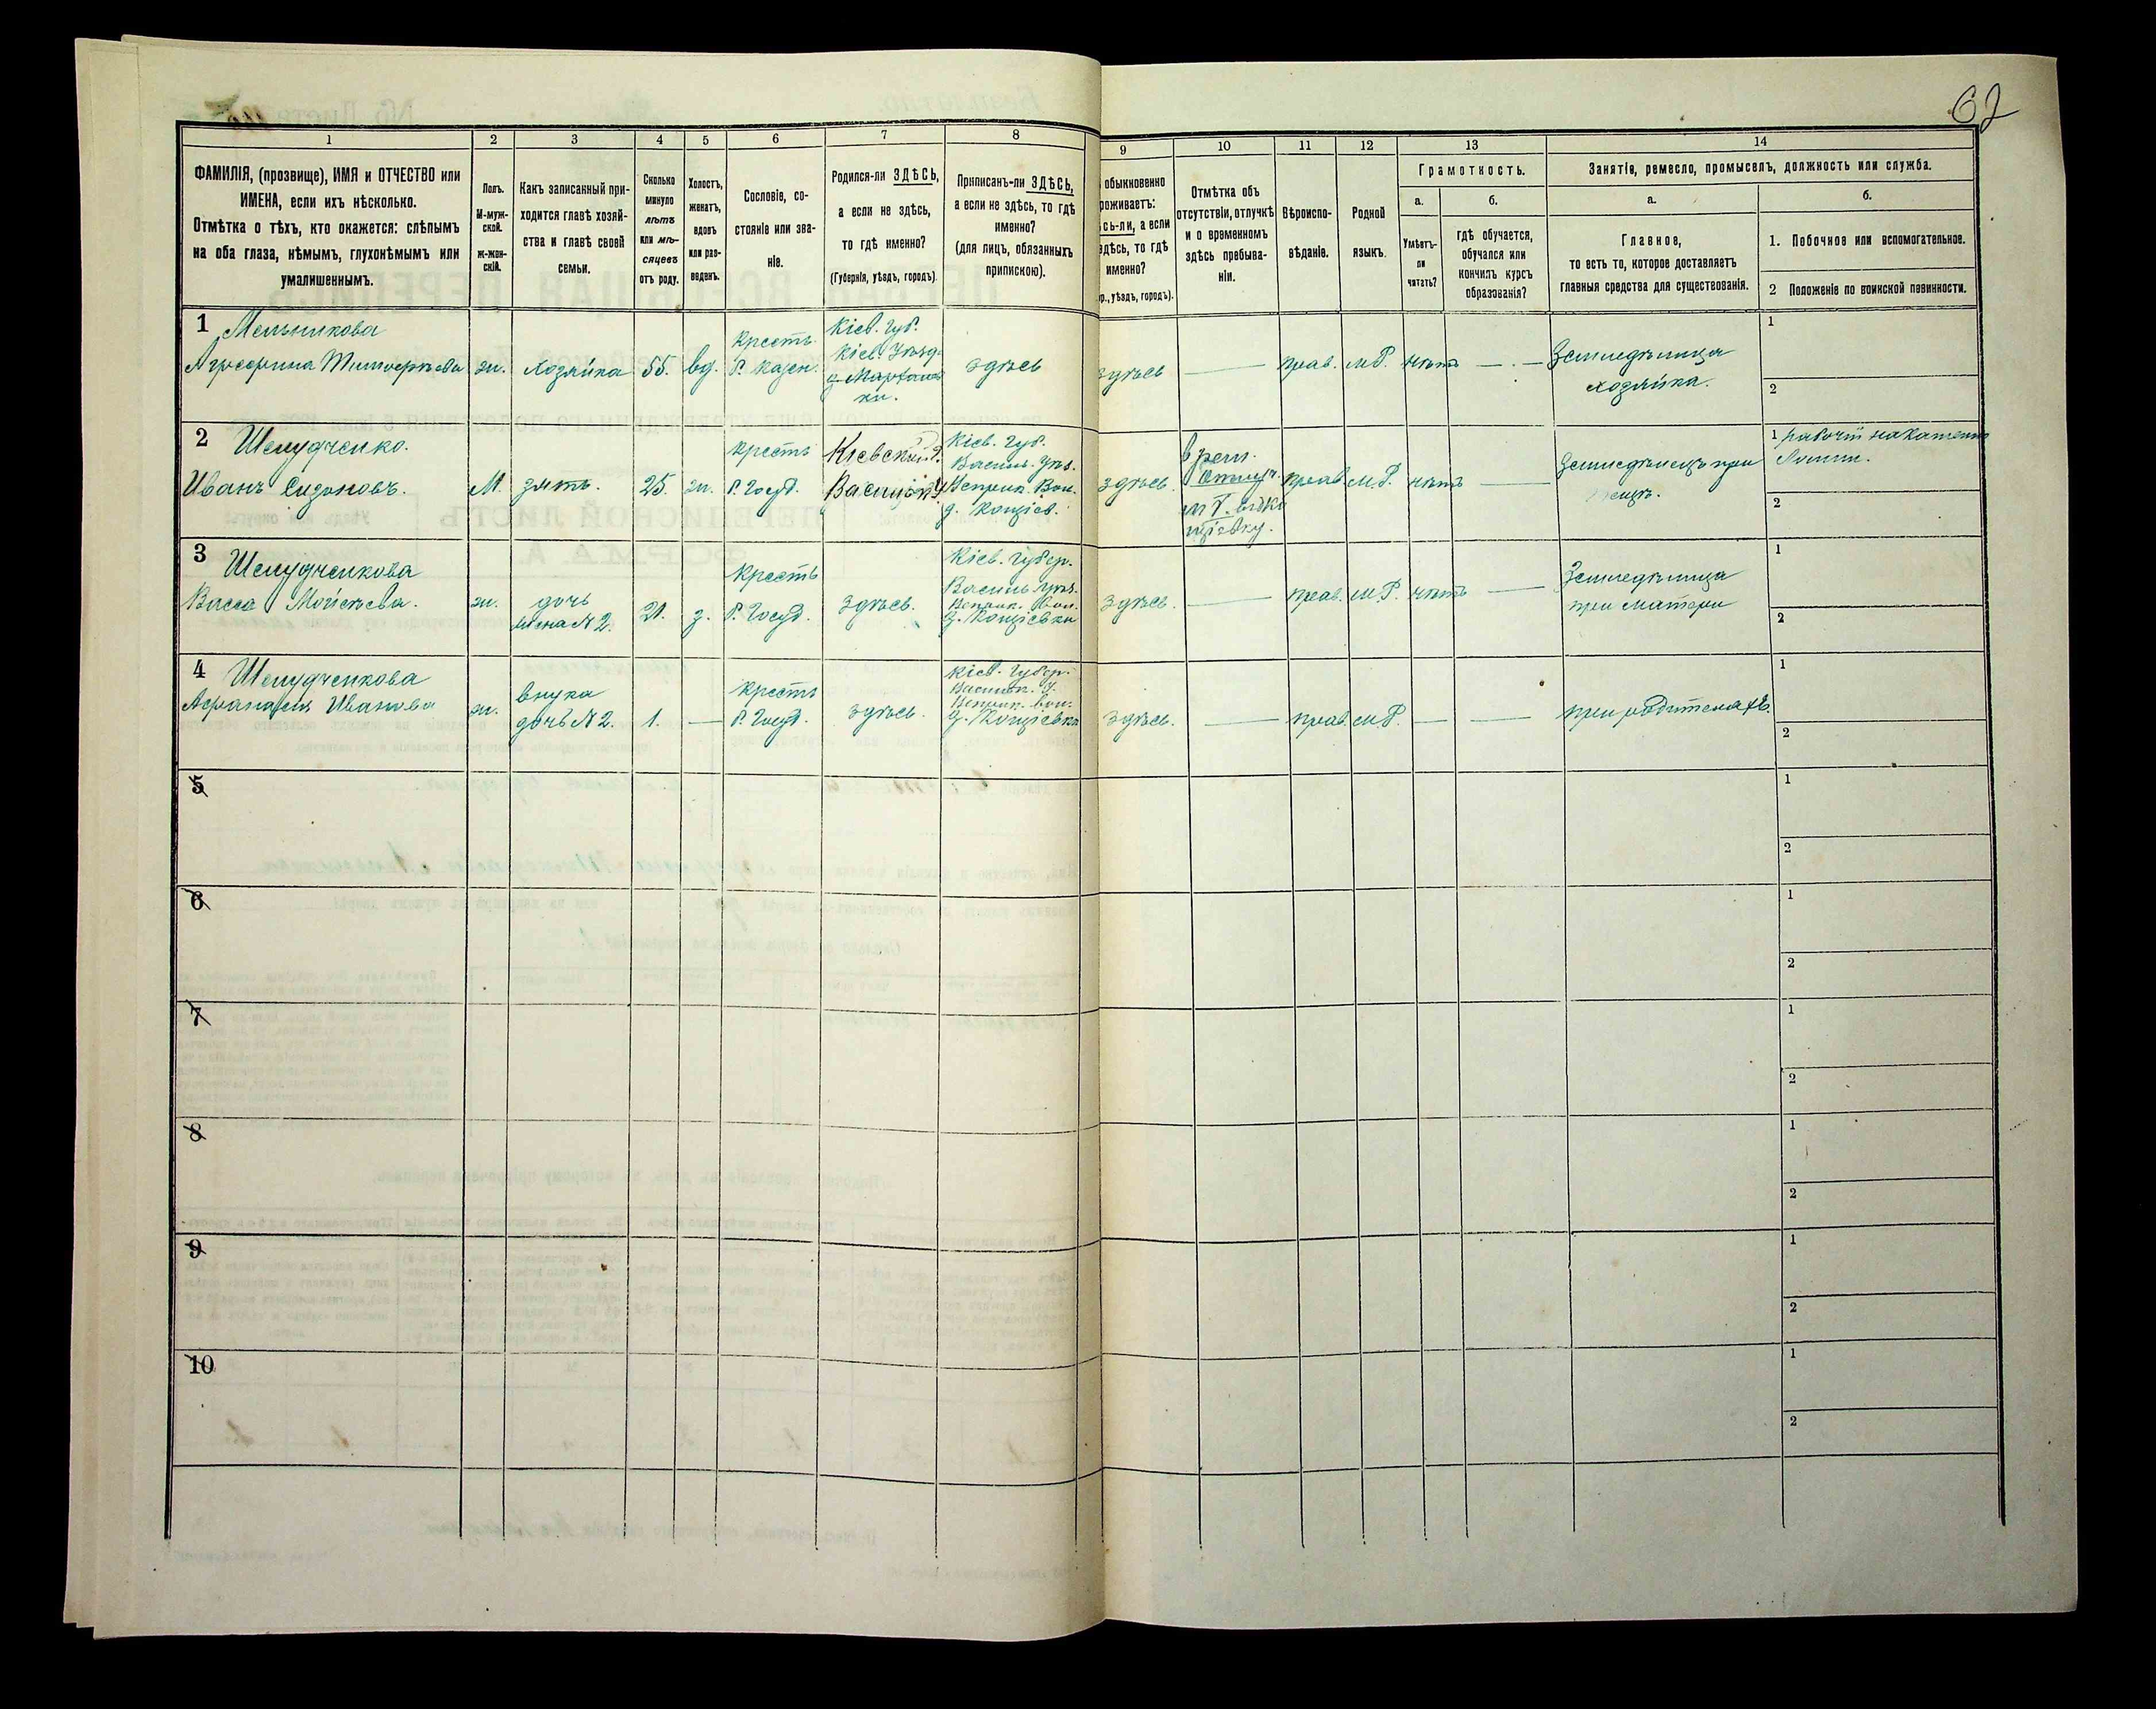 62
1
2
3
4
5
6
7
8
9
10
11
12
13
14
ФАМИЛІЯ, (прозвище), ИМЯ и ОТЧЕСТВО или
ИМЕНА, если ихъ нѣсколько.
Отмѣтка о тѣхъ, кто окажется: слѣпымъ
на оба глаза, нѣмымъ, глухонѣмымъ или
умалишеннымъ.
Полъ.
М-муж-
ской.
ж-жен-
скій.
Какъ записанный при-
ходится главѣ хозяй-
ства и главѣ своей
семьи.
Сколько
минуло
лѣтъ
или мѣ-
сяцевъ
отъ роду.
Холостъ,
женатъ,
вдовъ
или раз-
веденъ.
Сословіе, со-
стояніе или зва-
ніе.
Родился-ли ЗДѢСЬ,
а если не здѣсь,
то гдѣ именно?
(Губернія, уѣздъ, городъ).
Приписанъ-ли ЗДѢСЬ,
а если не здѣсь, то гдѣ
именно?
(для лицъ, обязанныхъ
припискою).
обыкновенно
роживаетъ:
сь-ли, а если
здѣсь, то гдѣ
именно?
р., уѣздъ, городъ).
Отмѣтка объ
отсутствіи, отлучкѣ
и о временномъ
здѣсь пребыва-
ніи.
Вѣроиспо-
вѣданіе.
Родной
языкъ.
Грамотность.
а.
Умѣетъ-
ли
читать?
б.
гдѣ обучается,
обучался или
кончилъ курсъ
образованія?
Занятіе, ремесло, промыселъ, должность или служба.
а.
Главное,
то есть то, которое доставляетъ
главныя средства для существованія.
б.
1. Побочное или вспомогательное.
2 Положеніе по воинской повинности.
1 Мельникова
Агрофина Тимофѣева
ж.
хозяйка
55.
вд.
Крест.
Кіев. Губ.
Кіев. Уѣзд.
здѣсь
здѣсь
прав.
М.Р.
нѣтъ
Земледѣлица
хозяйка.
1
2
2 Шелудченко.
Иванъ Сидоровъ.
М.
зять.
25.
ж.
Крестъ
Р. Госуд.
Кіевской Г.
Кіев. Губ.
здѣсь.
прав.
М.Р.
нѣтъ
Земледѣлецъ при
1 рабочій
2
3 Шелудченкова
Васса Мойсѣева.
ж.
дочь
жена № 2.
21.
з.
Крестъ
Р. Госуд.
здѣсь.
Кіев. Губер.
здѣсь.
прав.
М.Р.
нѣтъ
Земледѣлица
при матери
1
2
4 Шелудченкова
Афанасія Иванова
ж.
внука
дочь № 2.
1.
Крестъ
Р. Госуд.
здѣсь.
Кіев. Губер.
здѣсь.
прав.
М.Р.
при родителяхъ.
1
2
5
1
2
6
1
2
7
1
2
8
1
2
9
1
2
10
1
2